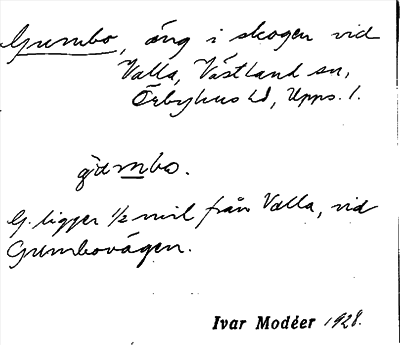 Gumbo, äng i skogen vid
Valla, Västland sn,
Örbyhus hd, Upps. l.
gùmbo.
G. ligger 1/2 mil från Valla, vid
Gumbovägen.
Ivar Modéer 1928.